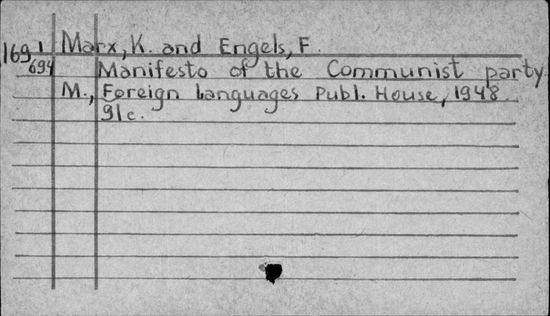 1691 Marx, K. and Engels, F.
694 Manifesto of the Communist party.
M., Foreign languages Publ. House, 1948.
91c.